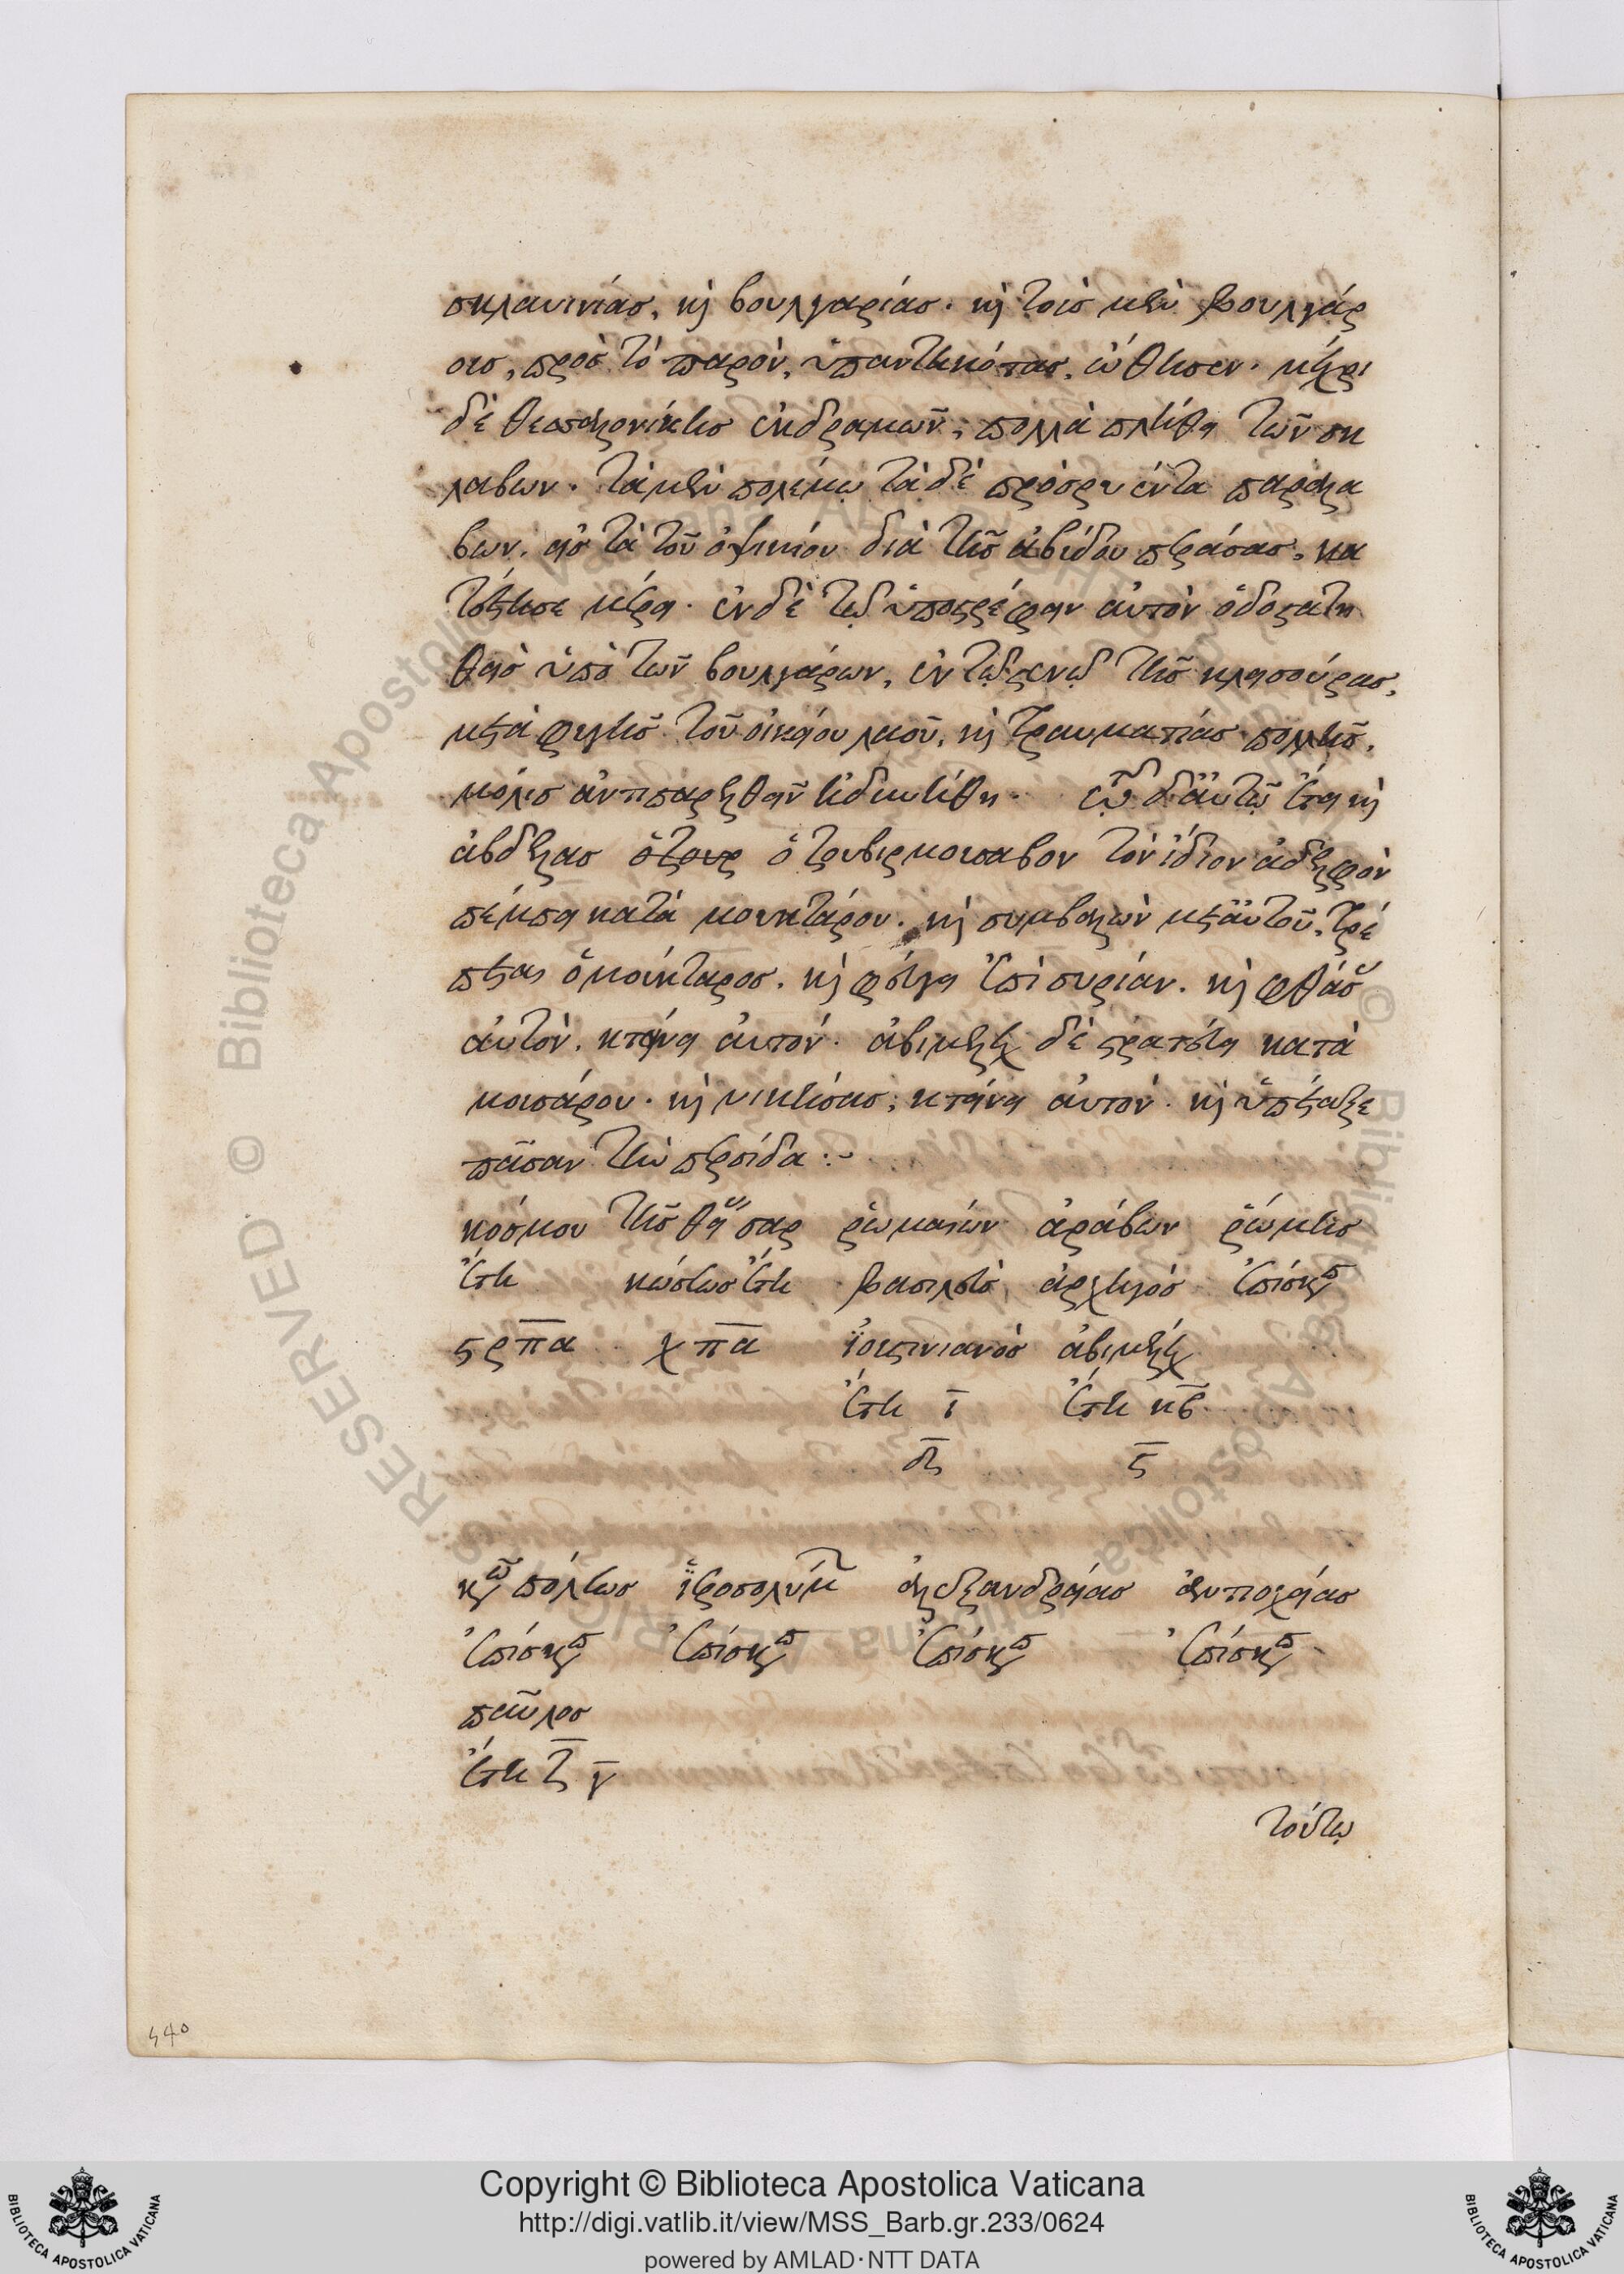 σκλαυινίας, κὶ βουλγαρίας. κὶ τοὶς μὲν βουλγάρ
οις, πρὸς τὸ παρὸν, ὑπαντηκότας, ὤθησεν. μέχρι
δὲ θεσσαλονίκης ἐκδραμὼν, πολλὰ πλήθη τῶν σκ
λαβων. τὰ μὲν πολέμω τὰ δὲ πρόσρυέντα παραλα
βων. εἰς τὰ τοῦ ὀψικίου διὰ τῆς ἀβύδου περάσας, κα
τέστησε μέρη. ἐν δὲ τῶ ὑποστρέφειν αὐτὸν ὁδοστατη
θεὶς ὑπὸ τῶν βουλγάρων, ἐν τῶ στενῶ τῆς κλεισούρας,
μετὰ σφαγῆς τοῦ οἰκείου λαοῦ, κὶ τραυματίας πολλῆς,
μόλις ἀντιπαρελθεῖν ἠδυνήθη. τῶ δ' αὐτῶ ἔτει κὶ
ἀβδελας ὁ τουρ ὁ ζουβιρ μουσαβον τὸν ἴδιον ἀδελφὸν
πέμπει κατὰ μουκτάρου. κὶ συμβαλὼν μετ' αὐτοῦ, τρέ
πεται ὁ μούκταρος. κὶ φεύγει ἐπὶ συρίαν. κὶ φθάσ
αὐτὸν, κτείνει αὐτόν. ἀβιμέλεχ δὲ στρατεύει κατὰ
μουσάρου. κὶ νικήσας, κτείνει αὐτόν. κὶ ὑπέταξε
πᾶσαν τὴν περσίδα :~
κόσμου τῆς θεί σαρ ῥωμαίων ἀράβων ῥώμης
ἔτη κώσεως ἔτη βασιλεὺς ἀρχηγὸς ἐπίσκοπ
ϛρπα χπα ἰουστινιανὸς ἀβιμέλεχ
ἔτη ι ἔτη κβ
δς ϛ
κων πόλεως ἱεροσολύμ ἀλεξανδρείας ἀντιοχείας
ἐπίσκοπ ἐπίσκοπ ἐπίσκοπ ἐπίσκοπ
παῦλος
ἔτη ζ γ
τούτω
540
Copyright © Biblioteca Apostolica Vaticana
http://digi.vatlib.it/view/MSS_Barb.gr.233/0624
powered by AMLAD·NTT DATA